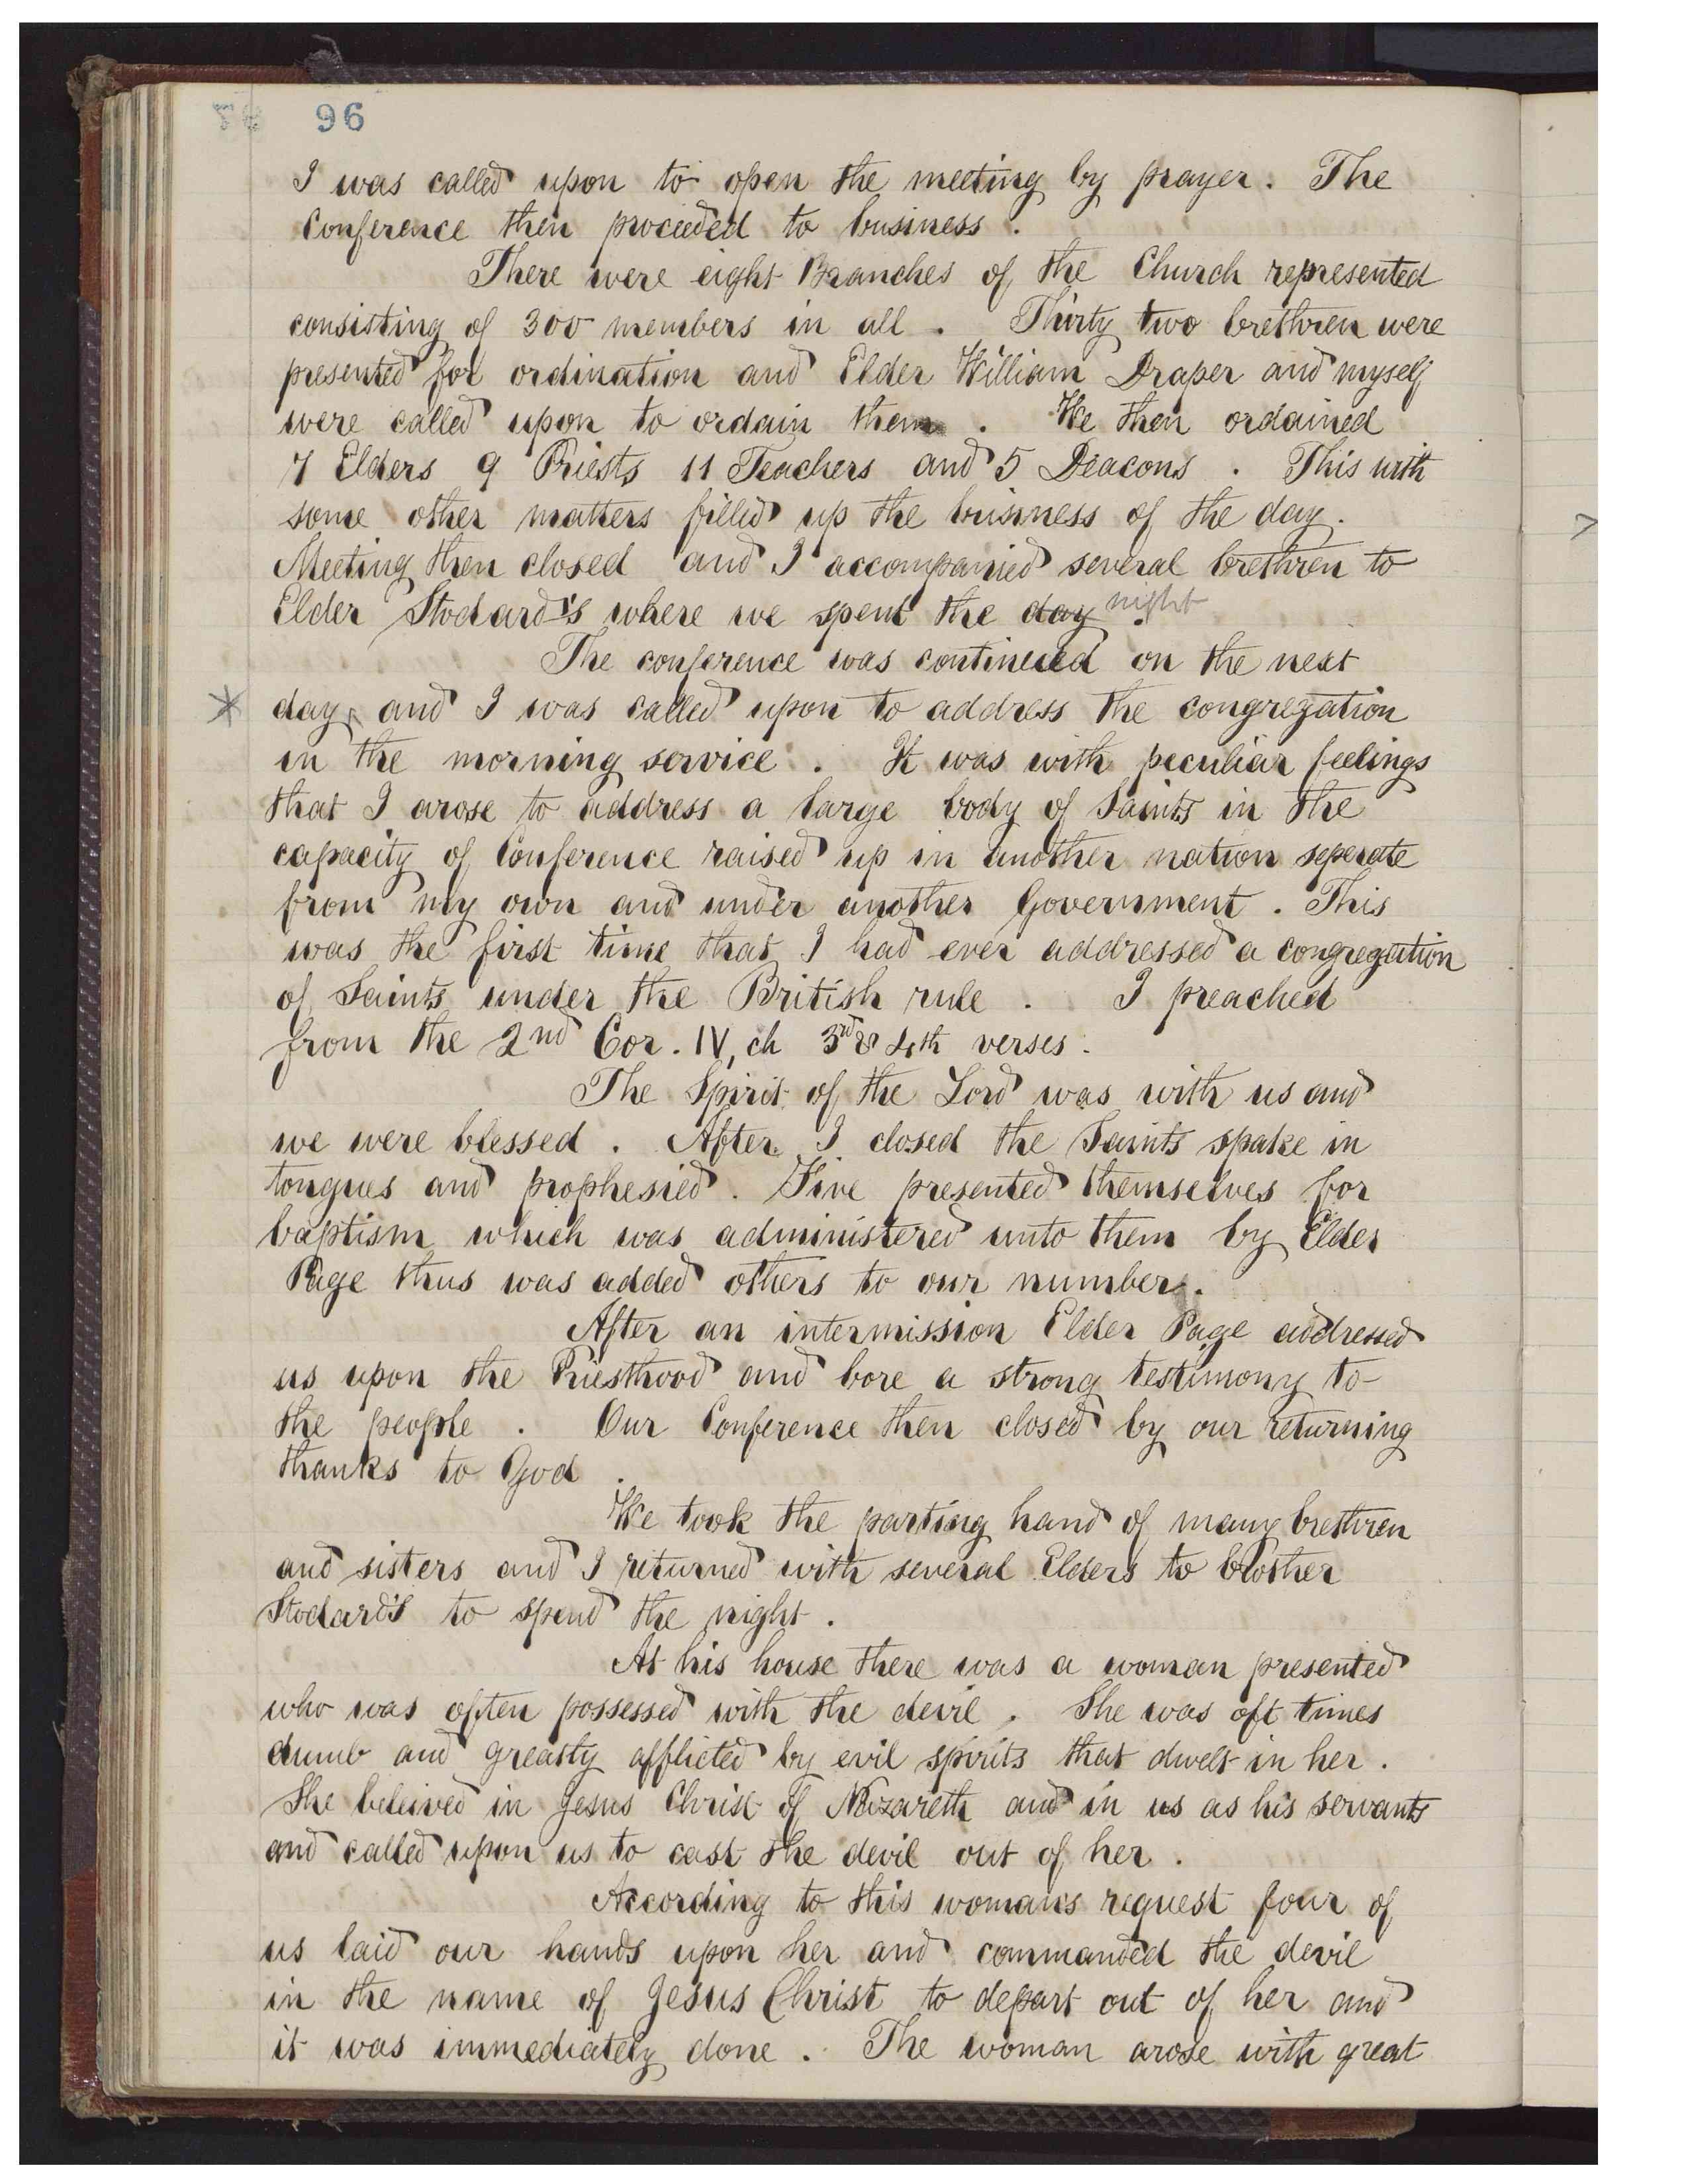 96
I was called upon to open the meeting by prayer. The
Conference then proceeded to business.
There were eight Branches of the Church represented
consisting of 300 members in all. Thirty two brethren were
presented for ordination and Elder William Draper and myself
were called upon to ordain them. We then ordained
7 Elders 9 Priests 11 Teachers and 5 Deacons. This with
some other matters filled up the business of the day.
Meeting then closed and I accompanied several brethren to
Elder Stodard's where we spent the day night.
The conference was continued on the next
* day, and I was called upon to address the congregation
in the morning service. It was with peculiar feelings
that I arose to address a large body of Saints in the
capacity of Conference raised up in another nation seperate
from my own and under another Government. This
was the first time that I had ever addressed a congregation
of Saints under the British rule. I preached
from the 2nd Cor. IV, ch 3rd & 4th verses.
The Spirit of the Lord was with us and
we were blessed. After I closed the Saints spake in
tongues and prophesied. Five presented themselves for
baptism which was administered unto them by Elder
Page thus was added others to our number.
After an intermission Elder Page addressed
us upon the Priesthood and bore a strong testimony to
the people. Our Conference then closed by our returning
thanks to God.
We took the parting hand of many brethren
and sisters and I returned with several Elders to brother
Stodard's to spend the night.
At his house there was a woman presented
who was often possessed with the devil. She was oft times
dumb and greatly afflicted by evil spirits that dwelt in her.
She beleived in Jesus Christ of Nazareth and in us as his servants
and called upon us to cast the devil out of her.
According to this woman's request four of
us laid our hands upon her and commanded the devil
in the name of Jesus Christ to depart out of her and
it was immediately done. The woman arose with great